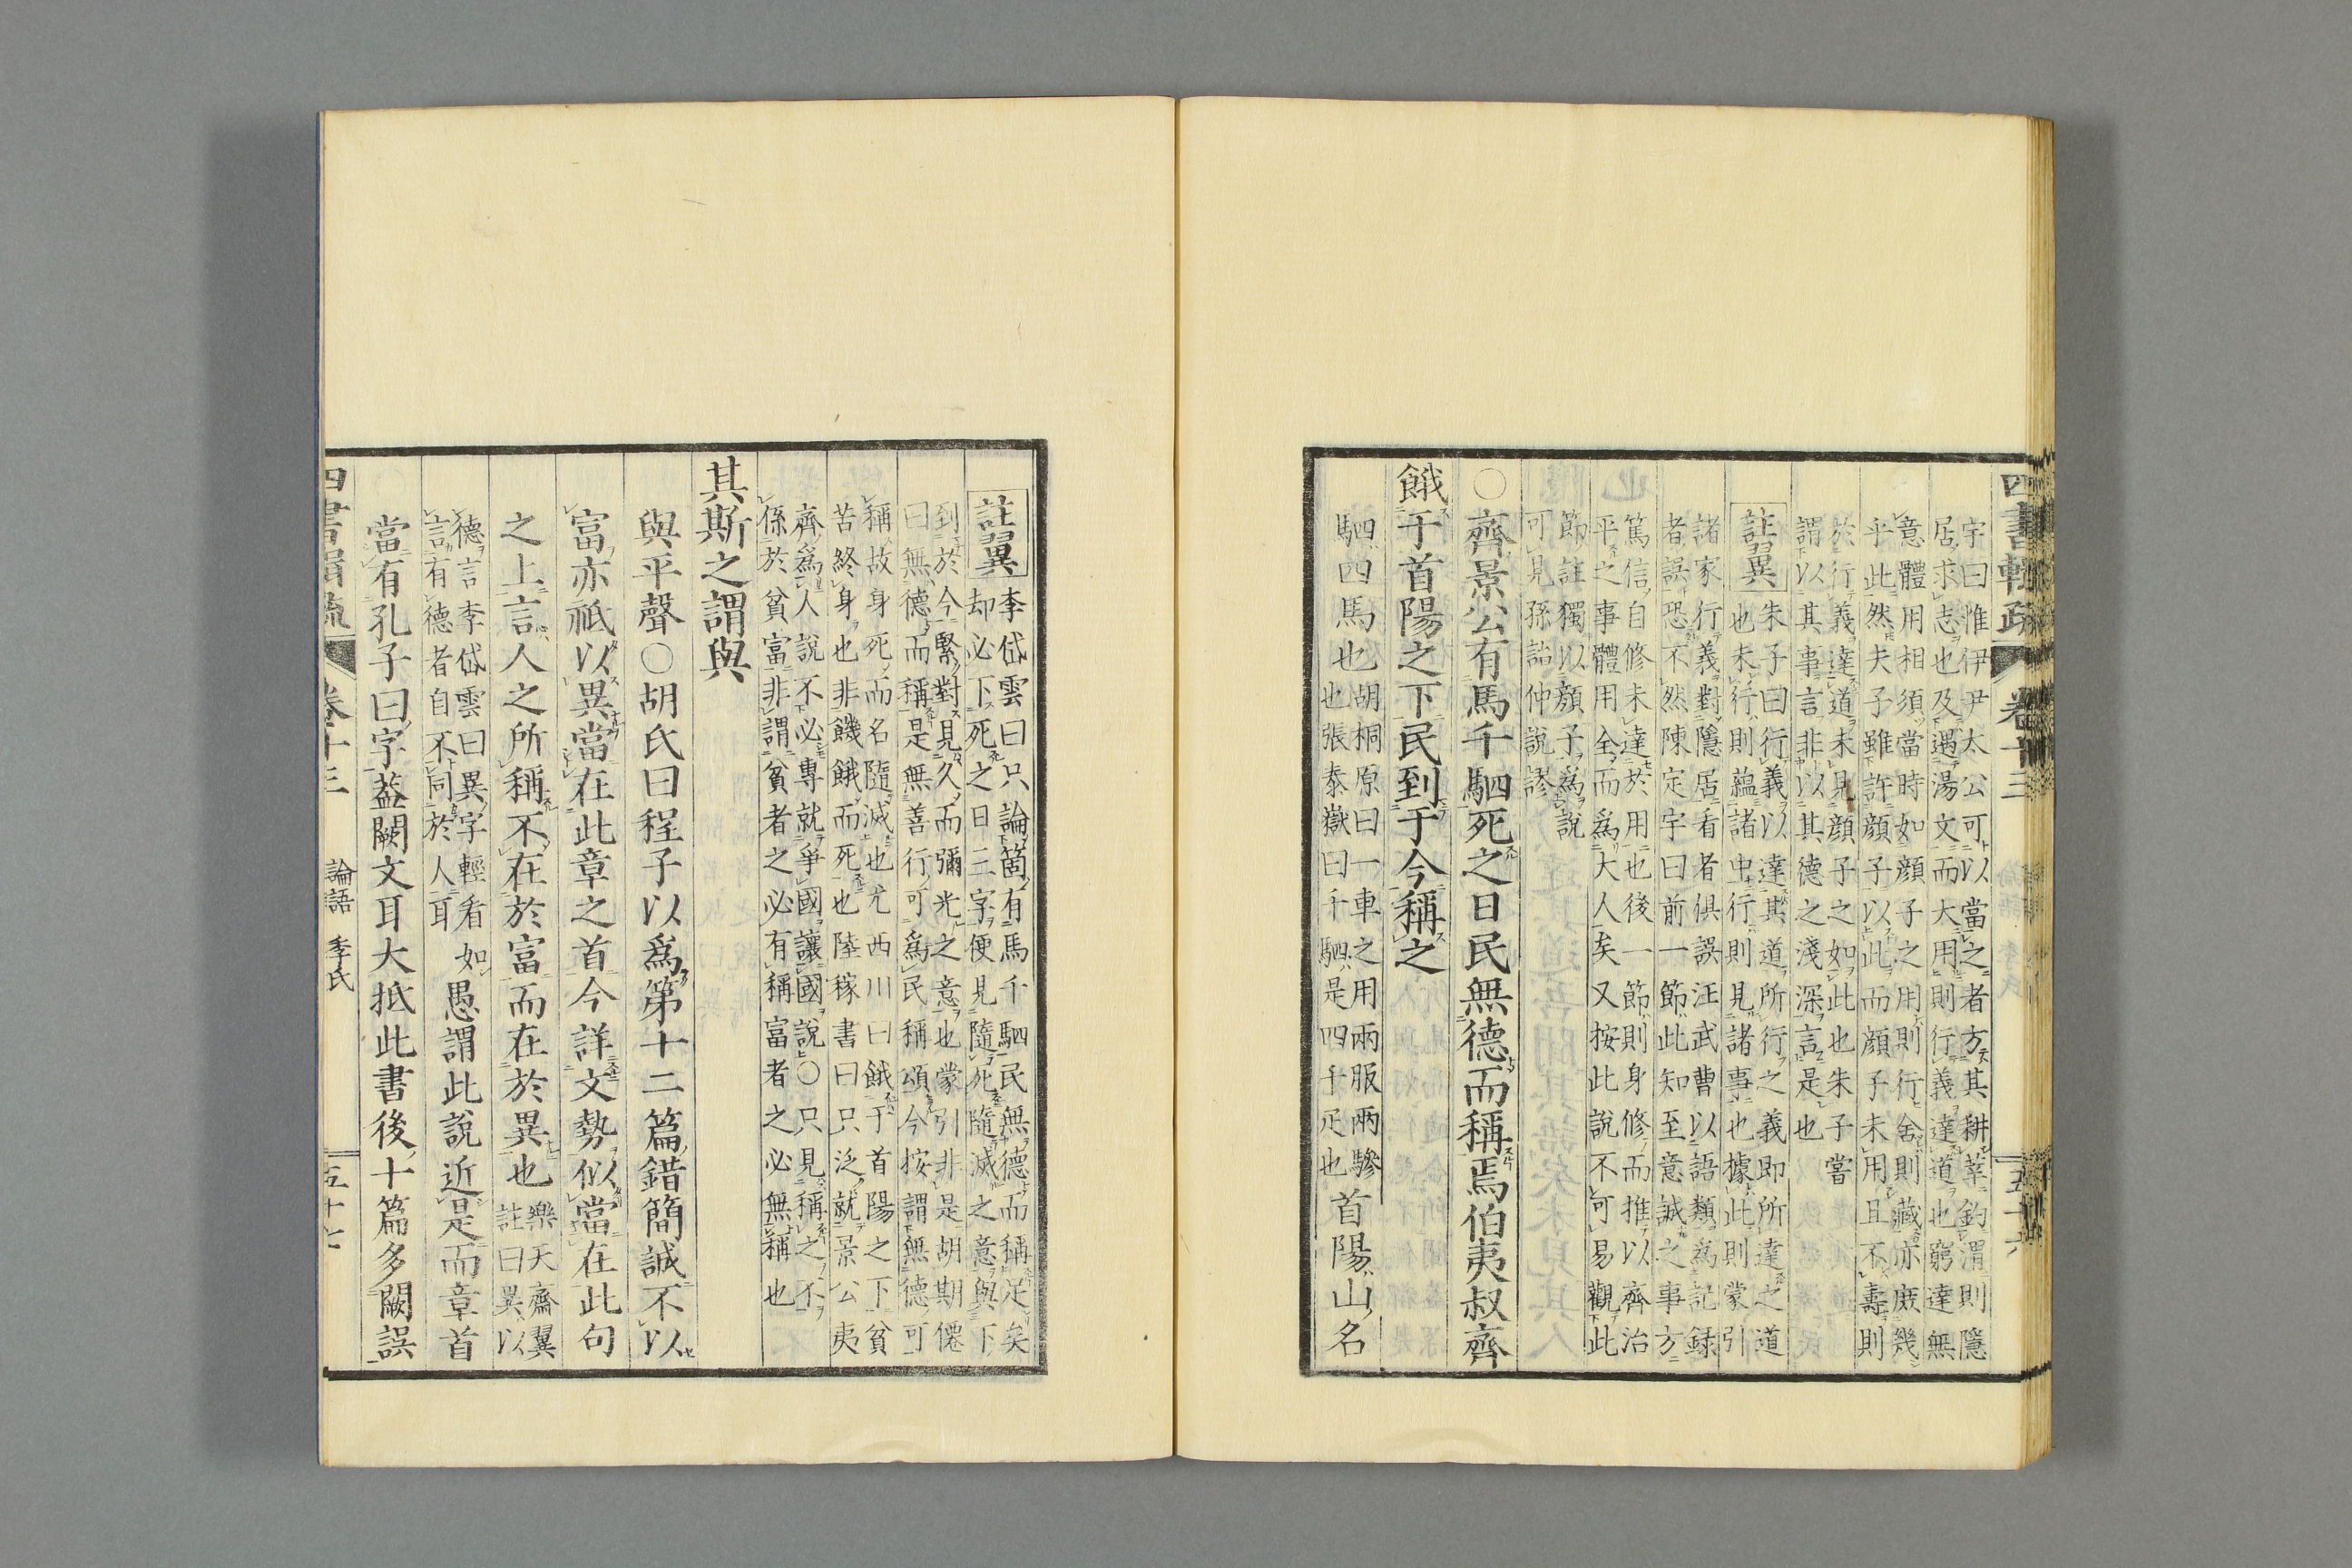 四書輯疏 卷十三 論語 季氏 五十六
字曰惟伊尹太公可以當之者方其耕莘釣渭則隱
居求志也及遇湯文而大用則行義達道也窮達無
意體用相須當時如顔子之用則行舍則藏亦庶幾
乎此然夫子雖許顔子以此而顔子未用且不壽則
於行義達道未見顔子之如此也朱子嘗
謂以其事言非以其德之淺深言是也
註翼
朱子曰行義以達其道所行之義即所達之道
也未行則蘊諸中行則見諸事也據此則蒙引
諸家行義對隱居看者俱誤汪武曹以語類爲記録
者誤恐不然陳定宇曰前一節此知至意誠之事方
篤信自修未達於用也後一節則身修而推以齊治
平之事體用全而爲大人矣又按此説不可易觀此
節註獨以顔子爲説
可見孫詒仲説謬
○齊景公有馬千駟死之日民無德而稱焉伯夷叔齊
餓于首陽之下民到于今稱之
駟四馬也
胡桐原曰一車之用兩服兩驂
也張泰嶽曰千駟是四千疋也
首陽山名
註翼
李岱雲曰只論箇有馬千駟民無德而稱足矣
却必下死之日二字便見隨死隨滅之意與下
到於今緊對見久而彌光之意也蒙引非是胡期僊
曰無德而稱是無善行可爲民稱頌今按謂無德可
稱故身死而名隨滅也尤西川曰餓于首陽之下貧
苦終身也非饑餓而死也陸稼書曰只泛就景公夷
齊爲人説不必專就爭國讓國説○只見稱之不
係於貧富非謂貧者之必有稱富者之必無稱也
其斯之謂與
與平聲○胡氏曰程子以爲第十二篇錯簡誠不以
富亦祗以異當在此章之首今詳文勢似當在此句
之上言人之所稱不在於富而在於異也
樂天齋翼
註曰異以
德言李岱雲曰異字輕看如
言有德者自不同於人耳
愚謂此説近是而章首
當有孔子曰字蓋闕文耳大抵此書後十篇多闕誤
四書輯疏 卷十三 論語 季氏 五十七